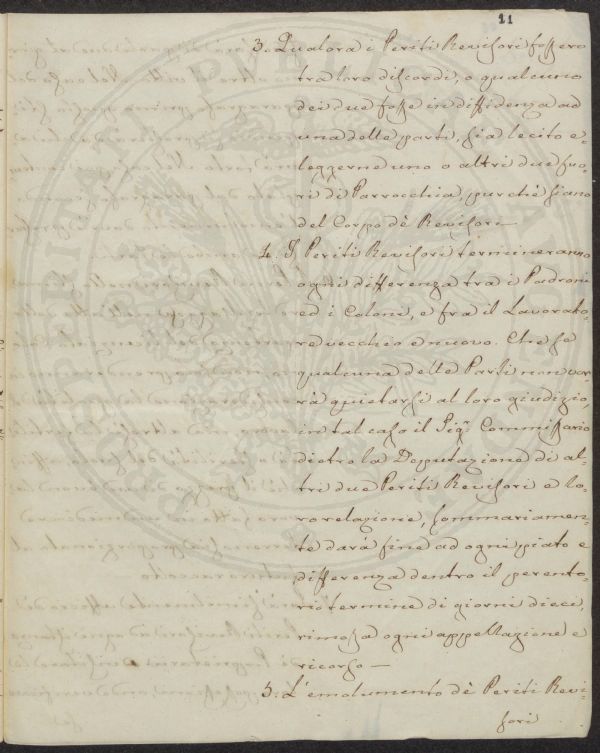 21
3. Qualora i Periti Revisori fossero
tra loro discordi, o qualcuno
dei due fosse in diffidenza ad
una delle parti, sia lecito e=
leggerne uno o altri due fuo=
ri di Parrocchia, purchè siano
del Corpo dè Revisori —
4. I Periti Revisori termineranno
ogni differenza tra i Padroni
ed i Coloni, e fra il Lavorato=
re vecchio e nuovo. Che se
qualcuna delle Parti non vor=
rà quietarsi al loro giudizio,
in tal caso il Sigr. Commissario
dietro la Deputazione di al=
tri due Periti Revisori e lo=
ro relazione, sommariamen=
te darà fine ad ogni piato e
differenza dentro il perento=
rio termine di giorni dieci,
rimossa ogni appellazione e
ricorso —
5. L'emolumento dè Periti Revi=
sori